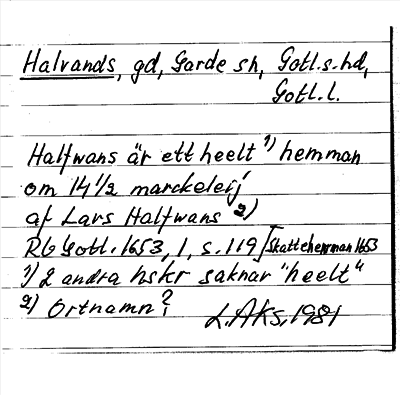 Halvands, gd, Garde sn, Gotl.s.hd,
Gotl.l.
Halfwans är ett heelt 1) hemman
om 14 1/2 marckeleij
af Lars Halfwans 2)
Rb Gotl. 1653, 1, s. 119 [Skattehemman 1653
1) 2 andra hskr saknar "heelt"
2) Ortnamn?
L.Aks. 1981